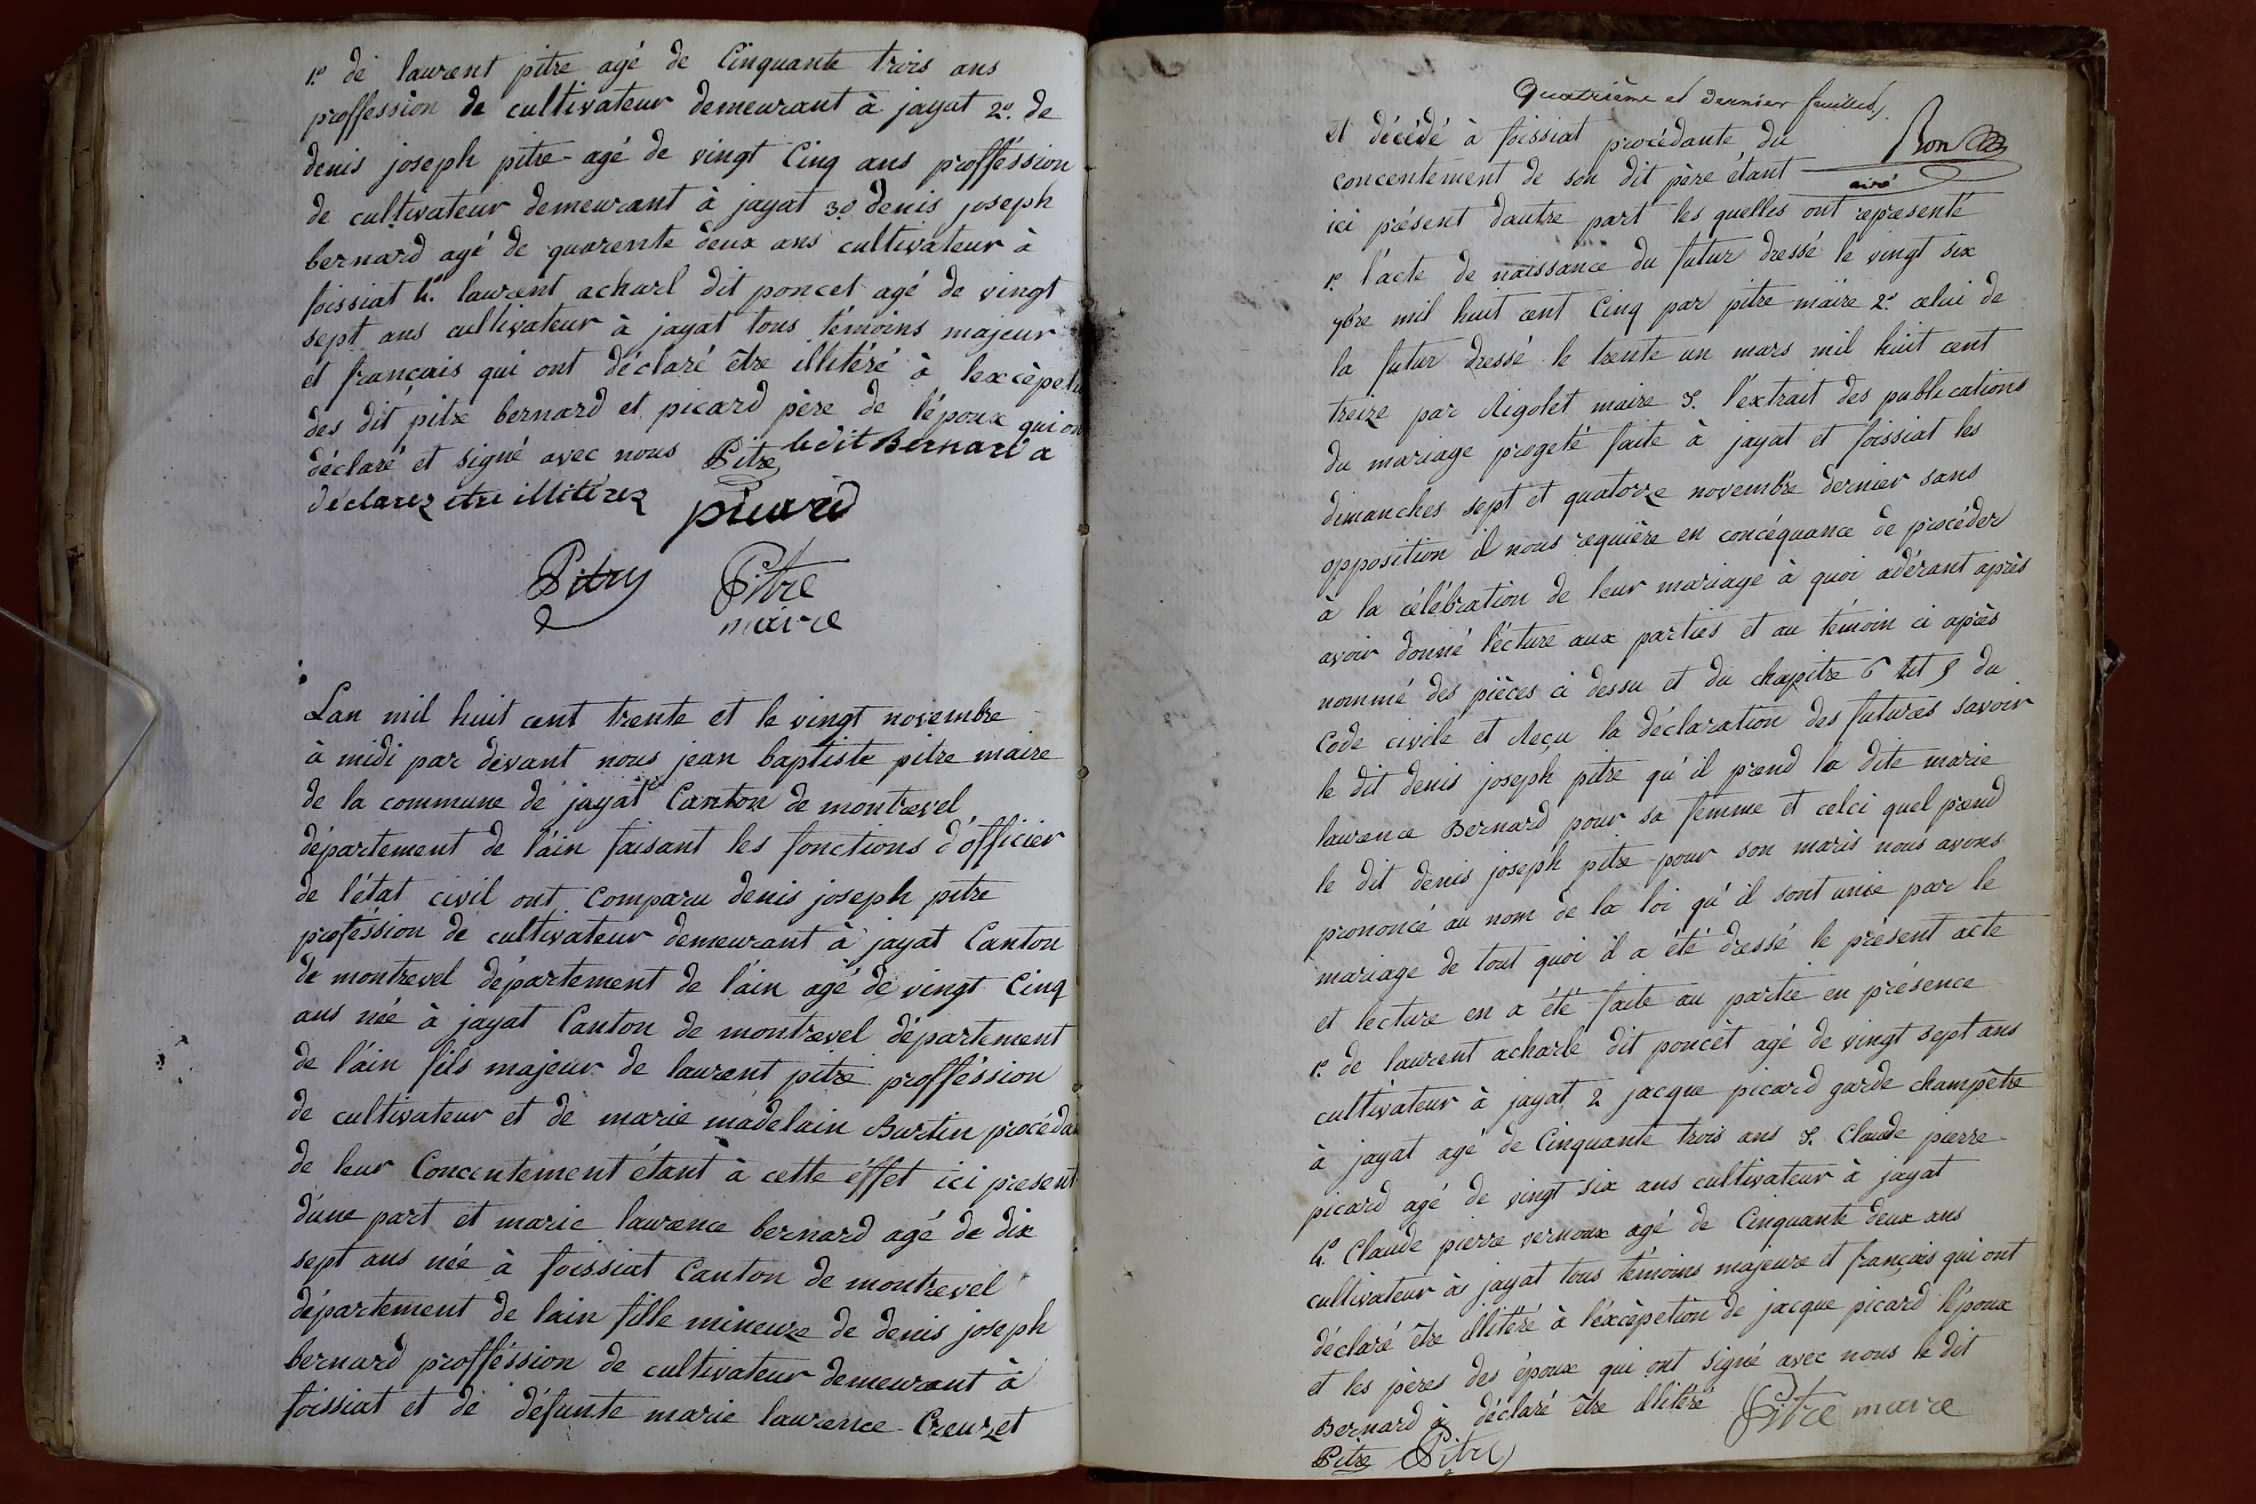 1.o de laurent pitre agé de Cinquante trois ans
proffession de cultivateur demeurant à jayat 2.o de
denis joseph pitre agé de vingt Cinq ans proffession
de cultivateur demeurant à jayat 3.o denis joseph
bernard agé de quarente deux ans cultivateur à
foissiat 4.o laurent acharl dit poncet agé de vingt
sept ans cultivateur à jayat tous témoins majeur
et français qui ont déclaré être illitéré à lexcèpetion
des dit pitre bernard et picard père de l'époux qui on
déclaré et signé avec nous Pitre le dit Bernard a
déclarez etre illitérez picard
Pitre Pitre
maire
Lan mil huit cent trente et le vingt novembre
à midi par devant nous jean baptiste pitre maire
de la commune de jayat Canton de montrevel
département de l'ain faisant les fonctions d'officier
de l'état civil ont Comparu denis joseph pitre
proféssion de cultivateur demeurant à jayat Canton
de montrevel département de l'ain agé de vingt Cinq
ans née à jayat Canton de montrevel département
de l'ain fils majeur de laurent pitre proffession
de cultivateur et de marie madelain Burtin procédan
de leur Concentement étant à cette éffet ici present
d'une part et marie laurence bernard agé de dix
sept ans née à foissiat Canton de montrevel
département de lain fille mineure de denis joseph
bernard proffession de cultivateur demeurant à
foissiat et de défunte marie laurence Creuzet
Quatrième et dernier feuillet
Bon
et décédé à foissiat procédante du
concentement de son dit père étant
ici présent dautre part les quelles ont representé
1.o l'acte de naissance du futur dressé le vingt six
9bre mil huit cent Cinq par pitre maire 2.o celui de
la futur dressé le trente un mars mil huit cent
treize par Rigolet maire 3. l'extrait des publications
du mariage progeté faite à jayat et foissiat les
dimanches sept et quatorze novembre dernier sans
opposition il nous requière en concéquance de procéder
à la célébration de leur mariage à quoi adérant après
avoir donné lécture aux parties et au témoin ci après
nommé des pièces ci dessu et du chapitre 6 tit 5 du
Code civile et Reçu la déclaration des futures savoir
le dit denis joseph pitre qu'il prend la dite marie
laurence Bernard pour sa femme et celci quel prend
le dit denis joseph pitre pour son maris nous avons
prononcé au nom de la loi qu'il sont unie par le
mariage de tout quoi il a été dressé le présent acte
et lecture en a été faite au partie en présence
1.o de laurent acharle dit poncet agé de vingt sept ans
cultivateur à jayat 2 jacque picard garde champêtre
à jayat agé de Cinquante trois ans 3. Claude pierre
picard agé de vingt six ans cultivateur à jayat
4.o Claude pierre vernoux agé de Cinquante deux ans
cultivateur à jayat tous témoins majeure et français qui ont
déclaré être illitéré à l'éxcèpetion de jacque picard l'époux
et les pères des époux qui ont signé avec nous le dit
Bernard à déclaré être illitéré Pitre maire
Pitre Pitre